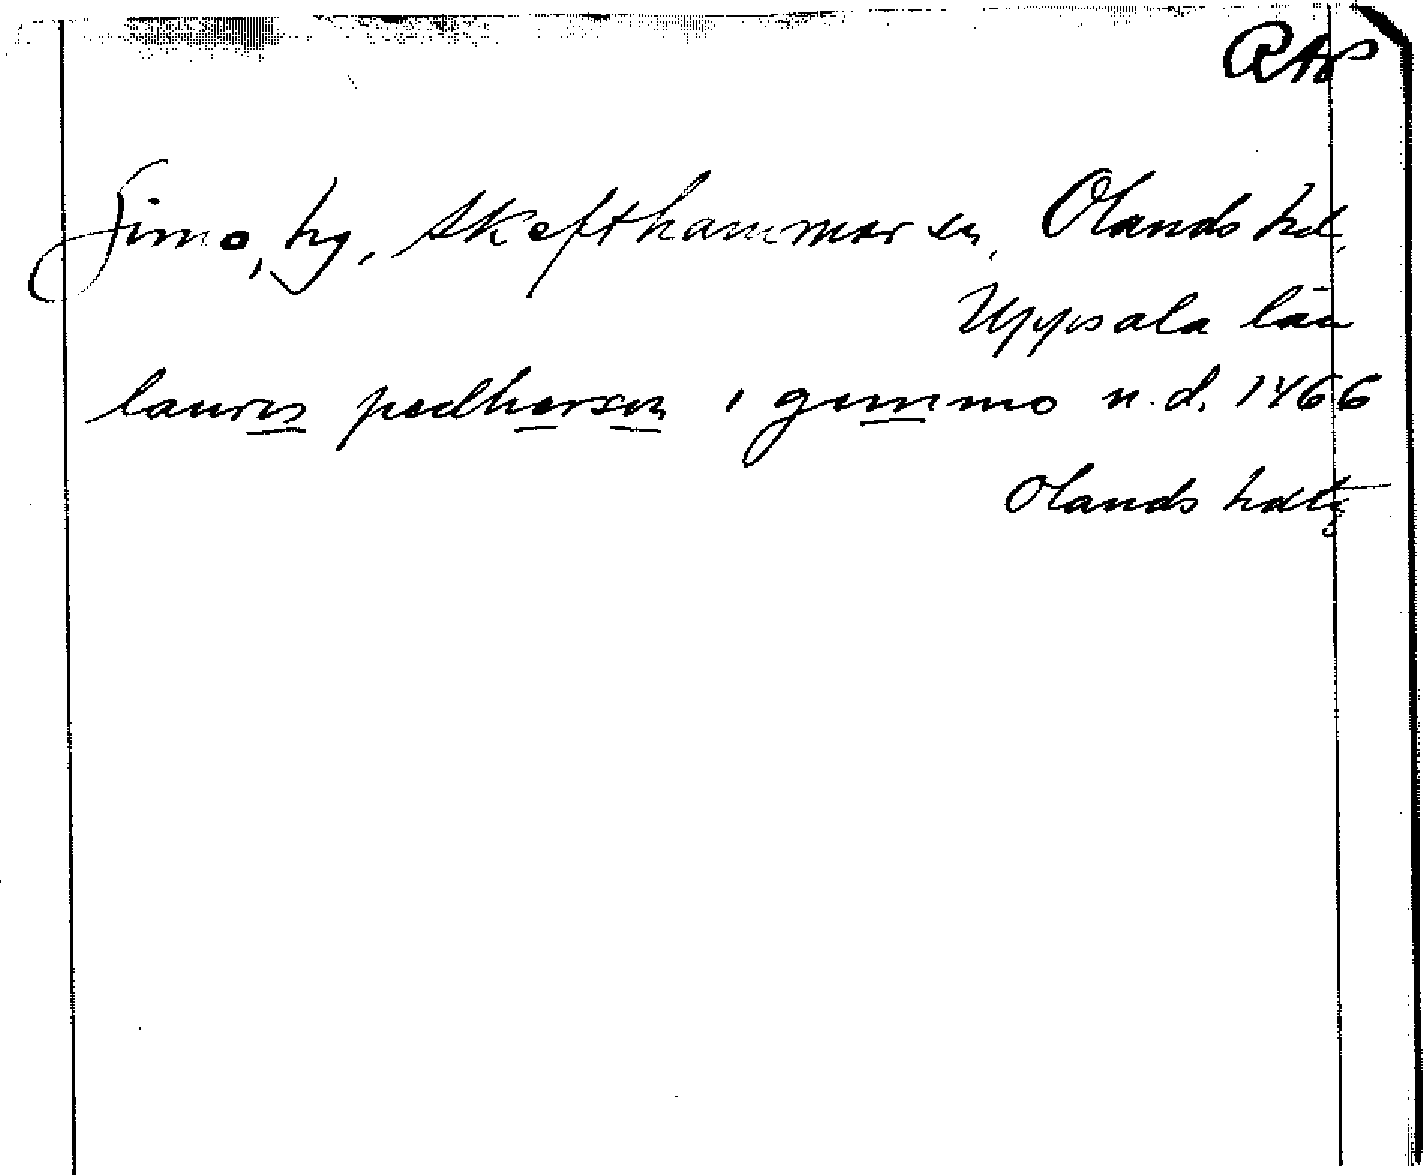 RAP
Gimo, by, Skefthammar sn, Olands hd,
Uppsala län
lauris pedherson i gimmo n.d. 1466
Olands hdtg